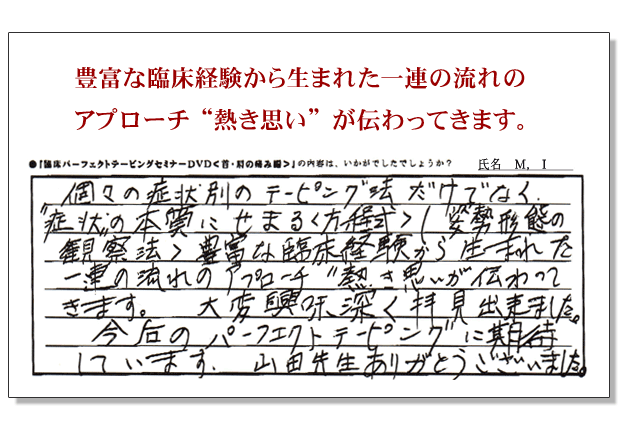 豊富な臨床経験から生まれた一連の流れの
アプローチ“熱き思い”が伝わってきます。
●「臨床パーフェクトテーピングセミナーDVD<首・肩の痛み編>」の内容は、いかがでしたでしょうか？ 氏名 M, I
個々の症状別のテーピング法だけでなく、
"症状"の本質にせまる<方程式>「姿勢形態の
観察法>豊富な臨床経験から生まれた
一連の流れのアプローチ"熱き思いが伝わって
きます。 大変興味深く拝見出来ました。
今后のパーフェクトテーピングに期待
しています. 山田先生ありがとうございました。